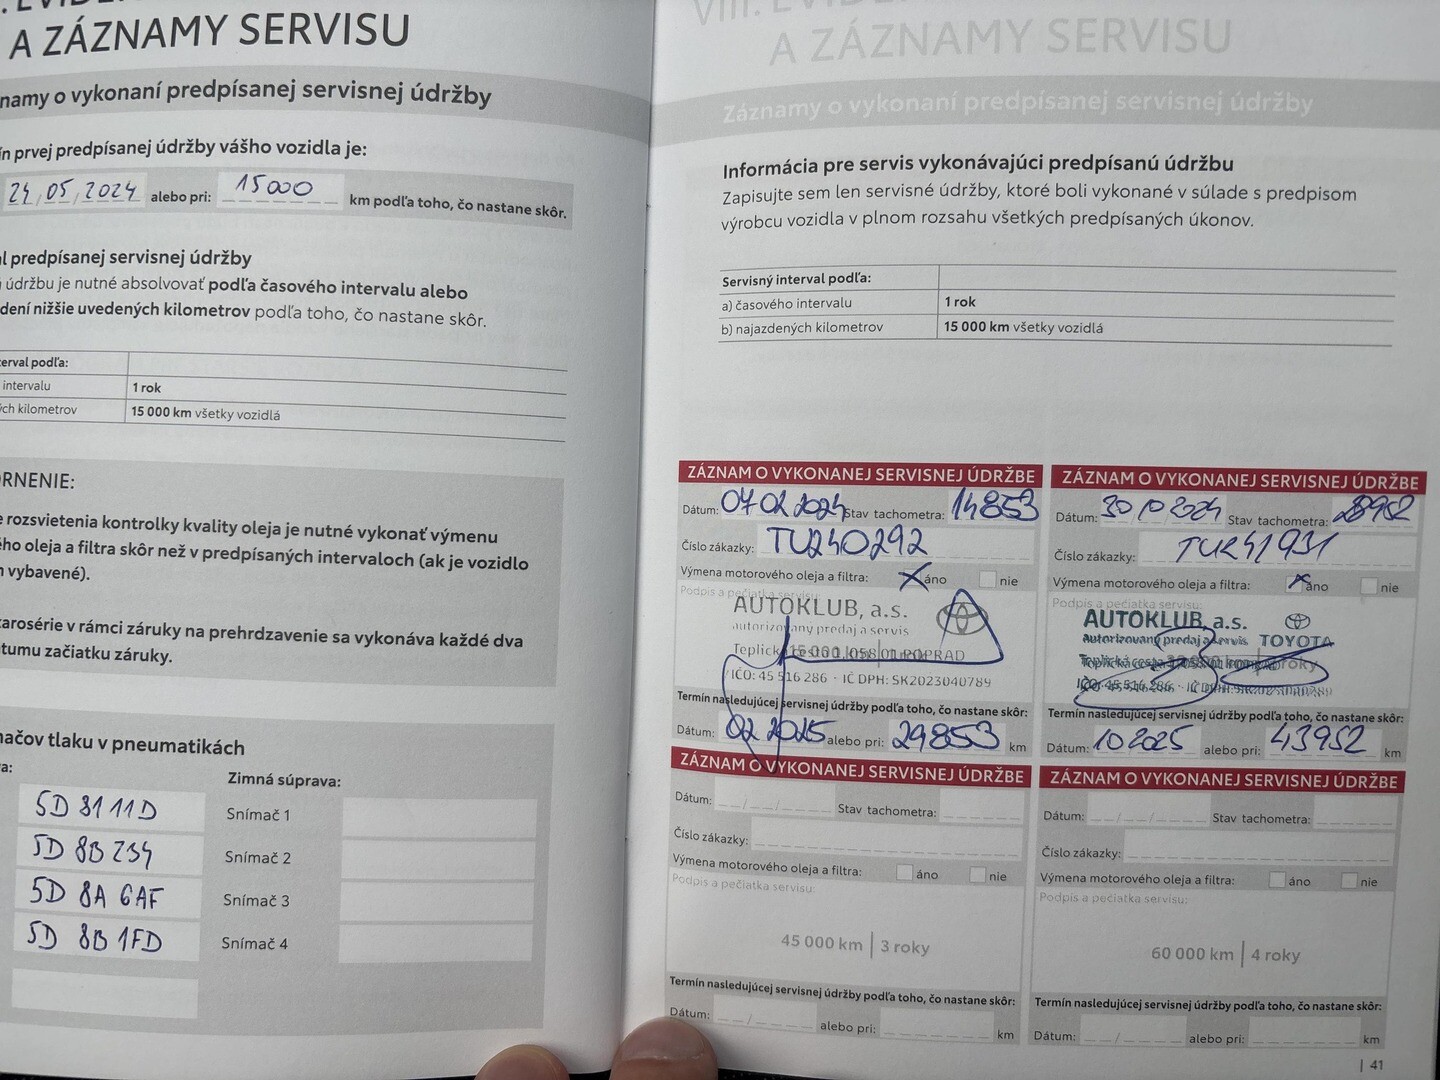 A ZÁZNAMY SERVISU
namy o vykonaní predpísanej servisnej údržby
ín prvej predpísanej údržby vášho vozidla je:
24/05/2024 alebo pri: 15000 km podľa toho, čo nastane skôr.
l predpísanej servisnej údržby
údržbu je nutné absolvovať podľa časového intervalu alebo
dení nižšie uvedených kilometrov podľa toho, čo nastane skôr.
erval podľa:
intervalu 1 rok
ých kilometrov 15 000 km všetky vozidlá
ORNENIE:
e rozsvietenia kontrolky kvality oleja je nutné vykonať výmenu
ého oleja a filtra skôr než v predpísaných intervaloch (ak je vozidlo
vybavené).
karosérie v rámci záruky na prehrdzavenie sa vykonáva každé dva
tumu začiatku záruky.
mačov tlaku v pneumatikách
va: Zimná súprava:
5D 81 11D Snímač 1
5D 8B 234 Snímač 2
5D 8A 6AF Snímač 3
5D 8B 1FD Snímač 4
VIII.
A ZÁZNAMY SERVISU
Záznamy o vykonaní predpísanej servisnej údržby
Informácia pre servis vykonávajúci predpísanú údržbu
Zapisujte sem len servisné údržby, ktoré boli vykonané v súlade s predpisom
výrobcu vozidla v plnom rozsahu všetkých predpísaných úkonov.
Servisný interval podľa:
a) časového intervalu 1 rok
b) najazdených kilometrov 15 000 km všetky vozidlá
ZÁZNAM O VYKONANEJ SERVISNEJ ÚDRŽBE
Dátum: 07 02 2024 Stav tachometra: 14853
Číslo zákazky: TU240292
Výmena motorového oleja a filtra: áno nie
Podpis a pečiatka servisu:
AUTOKLUB, a.s.
autorizovaný predaj a servis
Teplická 058 01 POPRAD
IČO: 45 516 286 · IČ DPH: SK2023040789
Termín nasledujúcej servisnej údržby podľa toho, čo nastane skôr:
Dátum: 02 2025 alebo pri: 29853 km
ZÁZNAM O VYKONANEJ SERVISNEJ ÚDRŽBE
Dátum: 30 10 2024 Stav tachometra: 28952
Číslo zákazky: TUR41931
Výmena motorového oleja a filtra: áno nie
Podpis a pečiatka servisu:
AUTOKLUB, a.s.
autorizovaný predaj a servis TOYOTA
roky
Termín nasledujúcej servisnej údržby podľa toho, čo nastane skôr:
Dátum: 10 2025 alebo pri: 43952 km
ZÁZNAM O VYKONANEJ SERVISNEJ ÚDRŽBE
Dátum: Stav tachometra:
Číslo zákazky:
Výmena motorového oleja a filtra: áno nie
Podpis a pečiatka servisu:
45 000 km | 3 roky
Termín nasledujúcej servisnej údržby podľa toho, čo nastane skôr:
Dátum: alebo pri: km
ZÁZNAM O VYKONANEJ SERVISNEJ ÚDRŽBE
Dátum: Stav tachometra:
Číslo zákazky:
Výmena motorového oleja a filtra: áno nie
Podpis a pečiatka servisu:
60 000 km | 4 roky
Termín nasledujúcej servisnej údržby podľa toho, čo nastane skôr:
Dátum: alebo pri: km
| 41